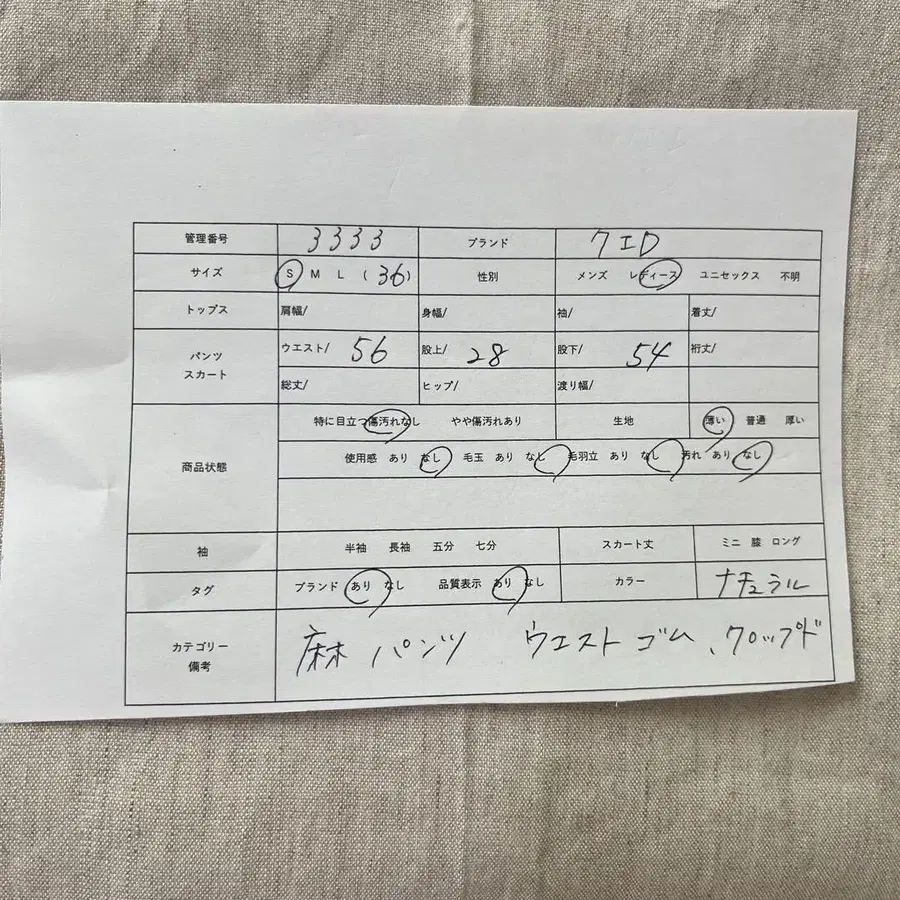 管理番号 3333 ブランド クエD
サイズ S M L (36) 性別 メンズ レディース ユニセックス 不明
トップス 肩幅/ 身幅/ 袖/ 着丈/
パンツ スカート ウエスト/ 56 股上/ 28 股下/ 54 裄丈/
総丈/ ヒップ/ 渡り幅/
商品状態 特に目立つ傷汚れなし やや傷汚れあり 生地 薄い 普通 厚い
使用感 あり なし 毛玉 あり なし 毛羽立 あり なし 汚れ あり なし
袖 半袖 長袖 五分 七分 スカート丈 ミニ 膝 ロング
タグ ブランド あり なし 品質表示 あり なし カラー ナチュラル
カテゴリー 備考 麻 パンツ ウエスト ゴム、クロップド